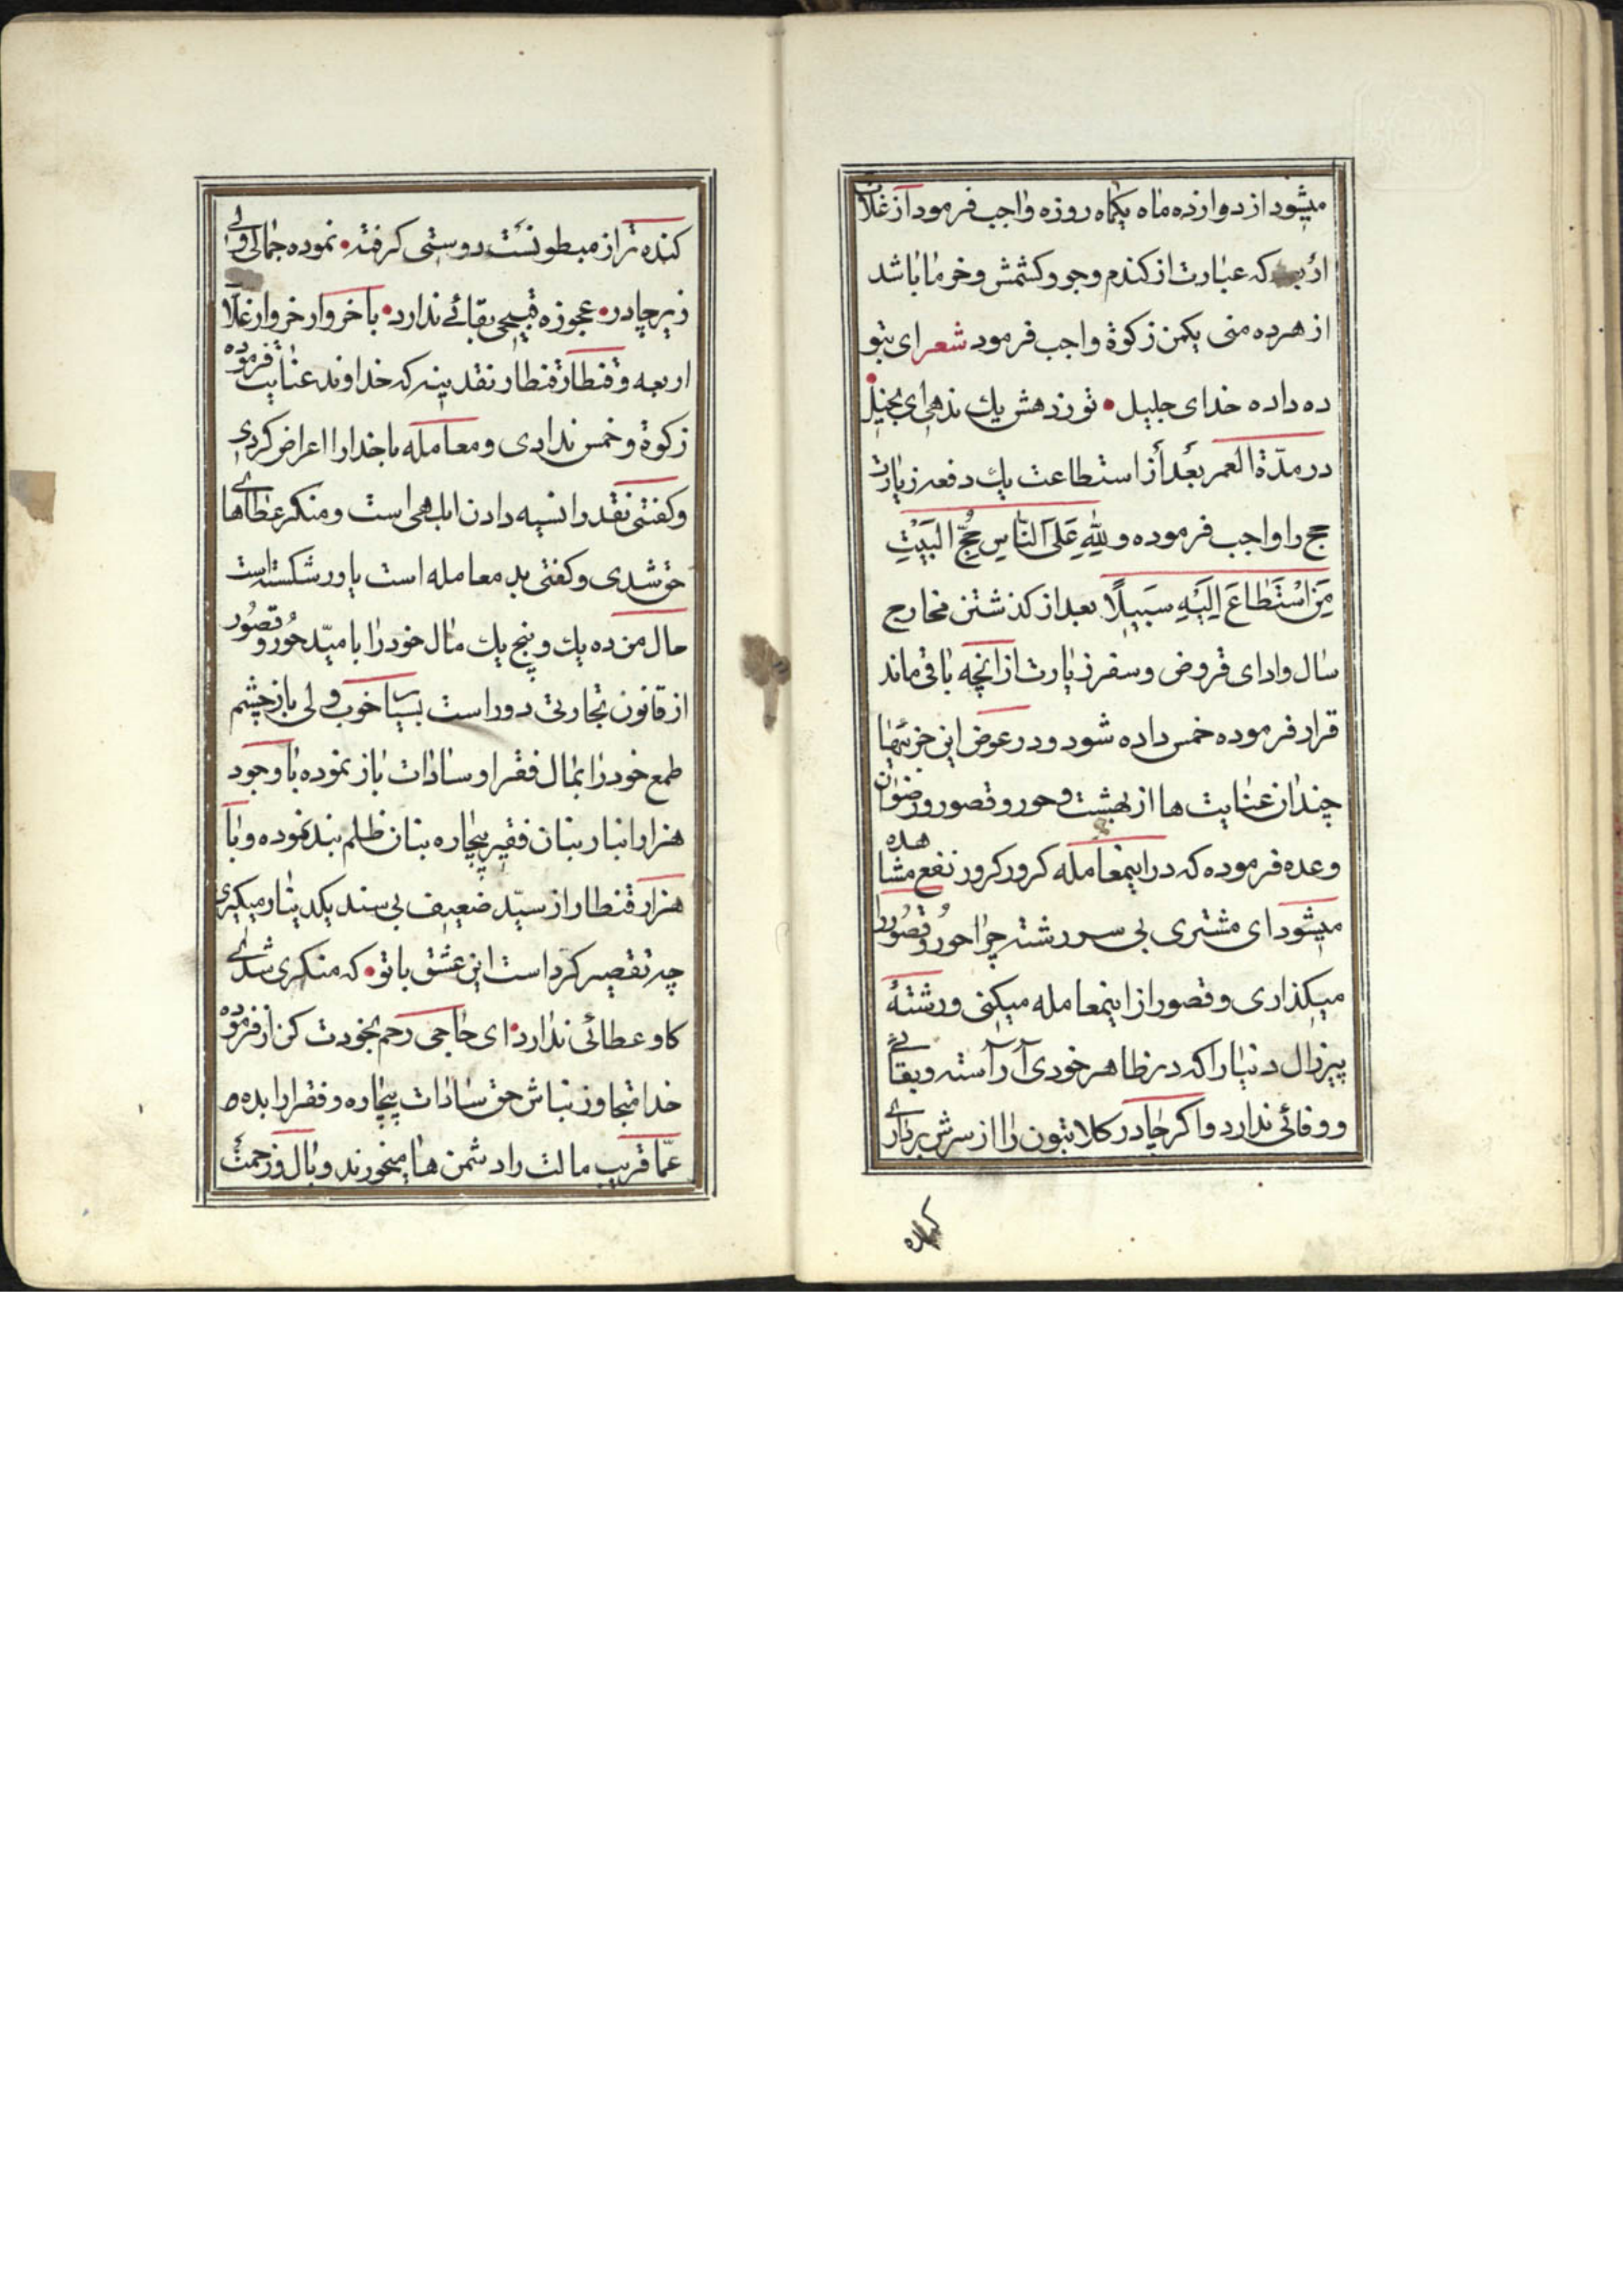 میشود از دوازده ماه یکماه روزه واجب فرمود از غلات
که عبارت از کندم و جو و کشمش و خرما باشد
از هر ده منی یکمن زکوة واجب فرمود شعر ای بتو
ده داده خدای جلیل • تو ز دهش یك ندهی ای بخیل •
در مدّة العمر بعد از استطاعت یك دفعه زیارت
حج را واجب فرموده وَلِلّٰهِ عَلَی النّاسِ حُجُّ البَیْتِ
مَنِ اسْتَطاعَ اِلَیْهِ سَبیلًا بعد از کذشتن مخارج
سال و ادای قروض و سفر زیارت از آنچه باقی ماند
قرار فرموده خمس داده شود و در عوض این جزئیها
چندان عنایت ها از بهشت و حور و قصور و رضوان
وعده فرموده که در اینمعامله کرور کرور نفع مشاهده
میشود ای مشتری بی سر رشته چرا حور و قصور را
میکذاری و قصور از اینمعامله میکنی و رشتهٔ
پیرزال دنیا را که در ظاهر خودی آراسته و بقائی
و وفائی ندارد و اکر چادر کلابتون را از سرش برداری
کنده تر از مبطونست دوستی کرفته • نموده جمالی ولی
زیر چادر • عجوزه قبیحی بقائے ندارد • با خروار خروار غلات
اربعه و قنطار قنطار نقدینه که خداوند عنایت فرموده
زکوة و خمس ندادی و معامله با خدا را اعراض کردی
و کفتی نقد را نسیه دادن ابلهی است و منکر عطاهای
حق شدی و کفتی بد معامله است یا ورشکسته است
حال من ده یك و پنج یك مال خود را بامید حور و قصور
از قانون تجارتی دور است بسیار خوب ولی باز چشم
طمع خود را بمال فقرا و سادات باز نموده با وجود
هزار انبار بنان فقیر بیچاره بنان ظلم بند نموده و با
هزار قنطار از سیّد ضعیف بی سند یکدینار میکیری
چه تقصیر کرد است این عشق با تو • که منکر شدی
کاو عطائی ندارد • ای حاجی رحم بخودت کن از فرموده
خدا متجاوز نباش حق سادات بیچاره و فقرا را بده
عمّا قریب مالت را دشمن ها میخورند و بال و زحمت